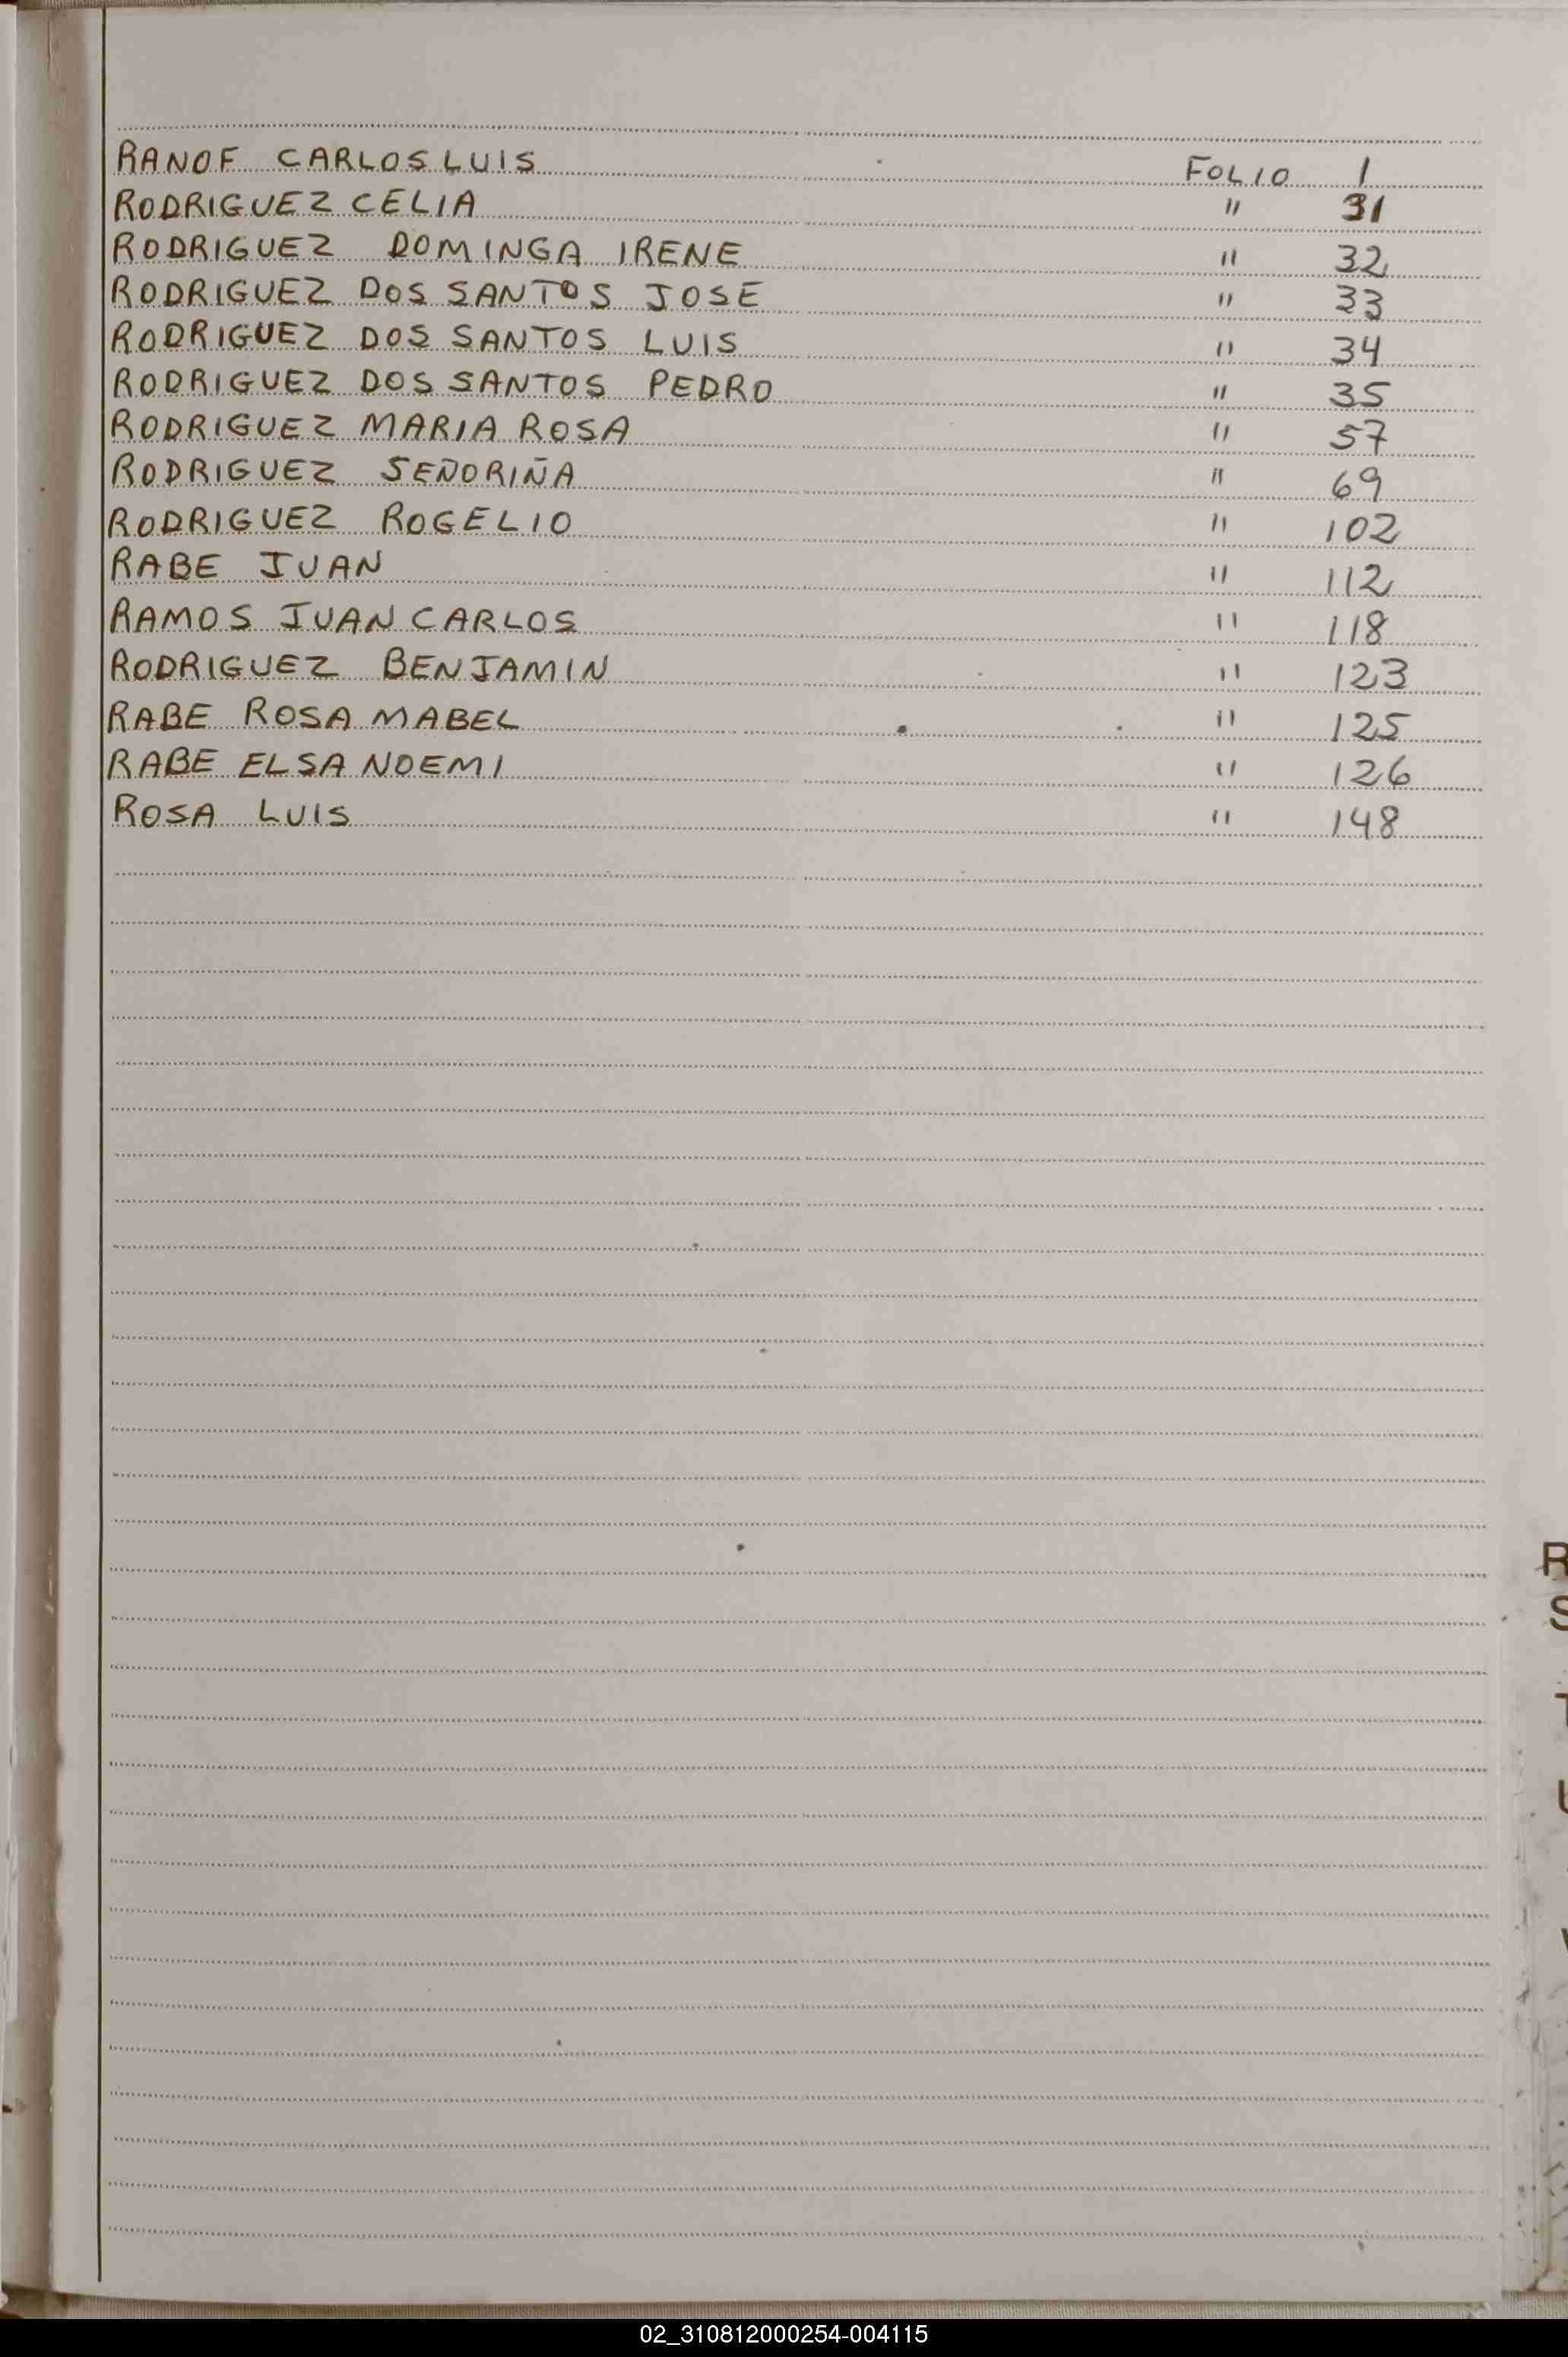 RANOF CARLOS LUIS FOLIO 1
RODRIGUEZ CELIA " 31
RODRIGUEZ DOMINGA IRENE " 32
RODRIGUEZ DOS SANTOS JOSE " 33
RODRIGUEZ DOS SANTOS LUIS " 34
RODRIGUEZ DOS SANTOS PEDRO " 35
RODRIGUEZ MARIA ROSA " 57
RODRIGUEZ SEÑORIÑA " 69
RODRIGUEZ ROGELIO " 102
RABE JUAN " 112
RAMOS JUAN CARLOS " 118
RODRIGUEZ BENJAMIN " 123
RABE ROSA MABEL " 125
RABE ELSA NOEMI " 126
ROSA LUIS " 148
R
S
T
U
V
02_310812000254-004115